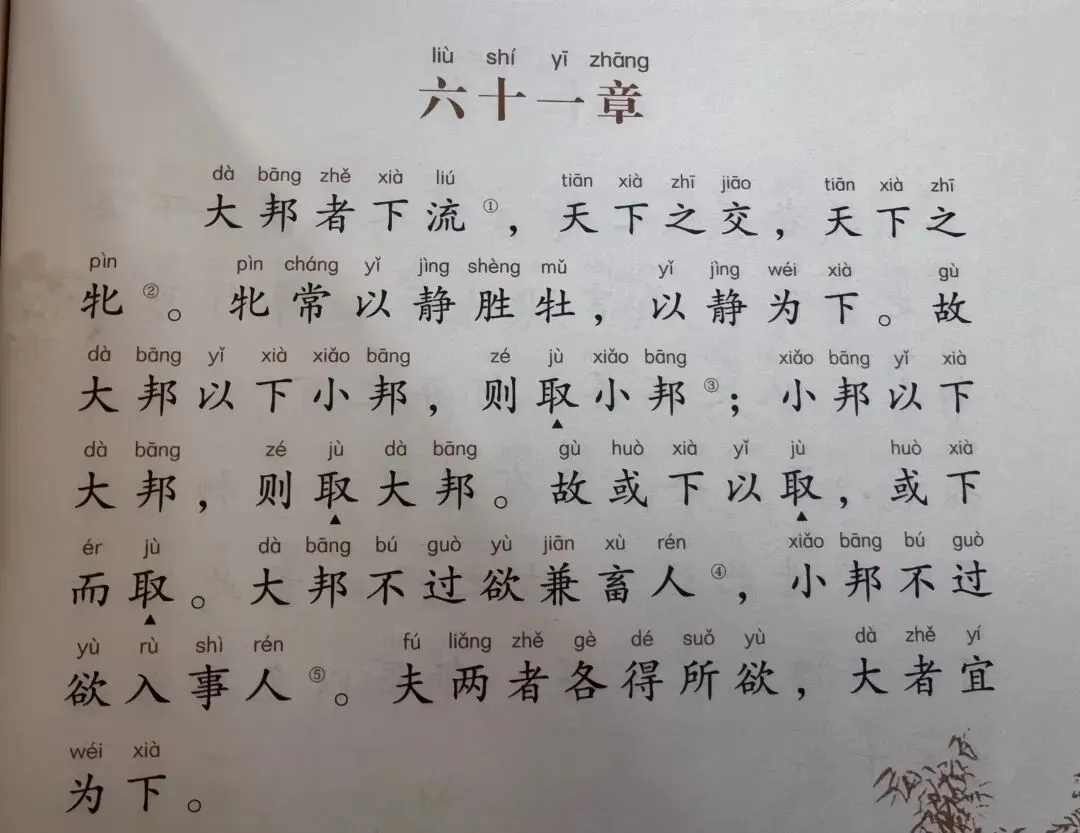 liù shí yī zhāng
六十一章
dà bāng zhě xià liú tiān xià zhī jiāo tiān xià zhī
大邦者下流①，天下之交，天下之
pìn pìn cháng yǐ jìng shèng mǔ yǐ jìng wéi xià gù
牝②。牝常以静胜牡，以静为下。故
dà bāng yǐ xià xiǎo bāng zé jù xiǎo bāng xiǎo bāng yǐ xià
大邦以下小邦，则取小邦③；小邦以下
dà bāng zé jù dà bāng gù huò xià yǐ jù huò xià
大邦，则取大邦。故或下以取，或下
ér jù dà bāng bú guò yù jiān xù rén xiǎo bāng bú guò
而取。大邦不过欲兼畜人④，小邦不过
yù rù shì rén fú liǎng zhě gè dé suǒ yù dà zhě yí
欲入事人⑤。夫两者各得所欲，大者宜
wéi xià
为下。